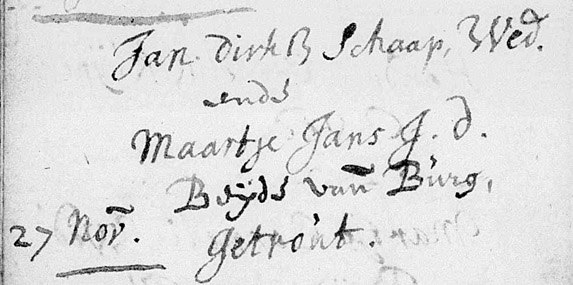 Jan Dirks Schaap, Wed.
ende
Maartje Jans J. d.
Beÿde van Burg,
27 Nov. getrout.